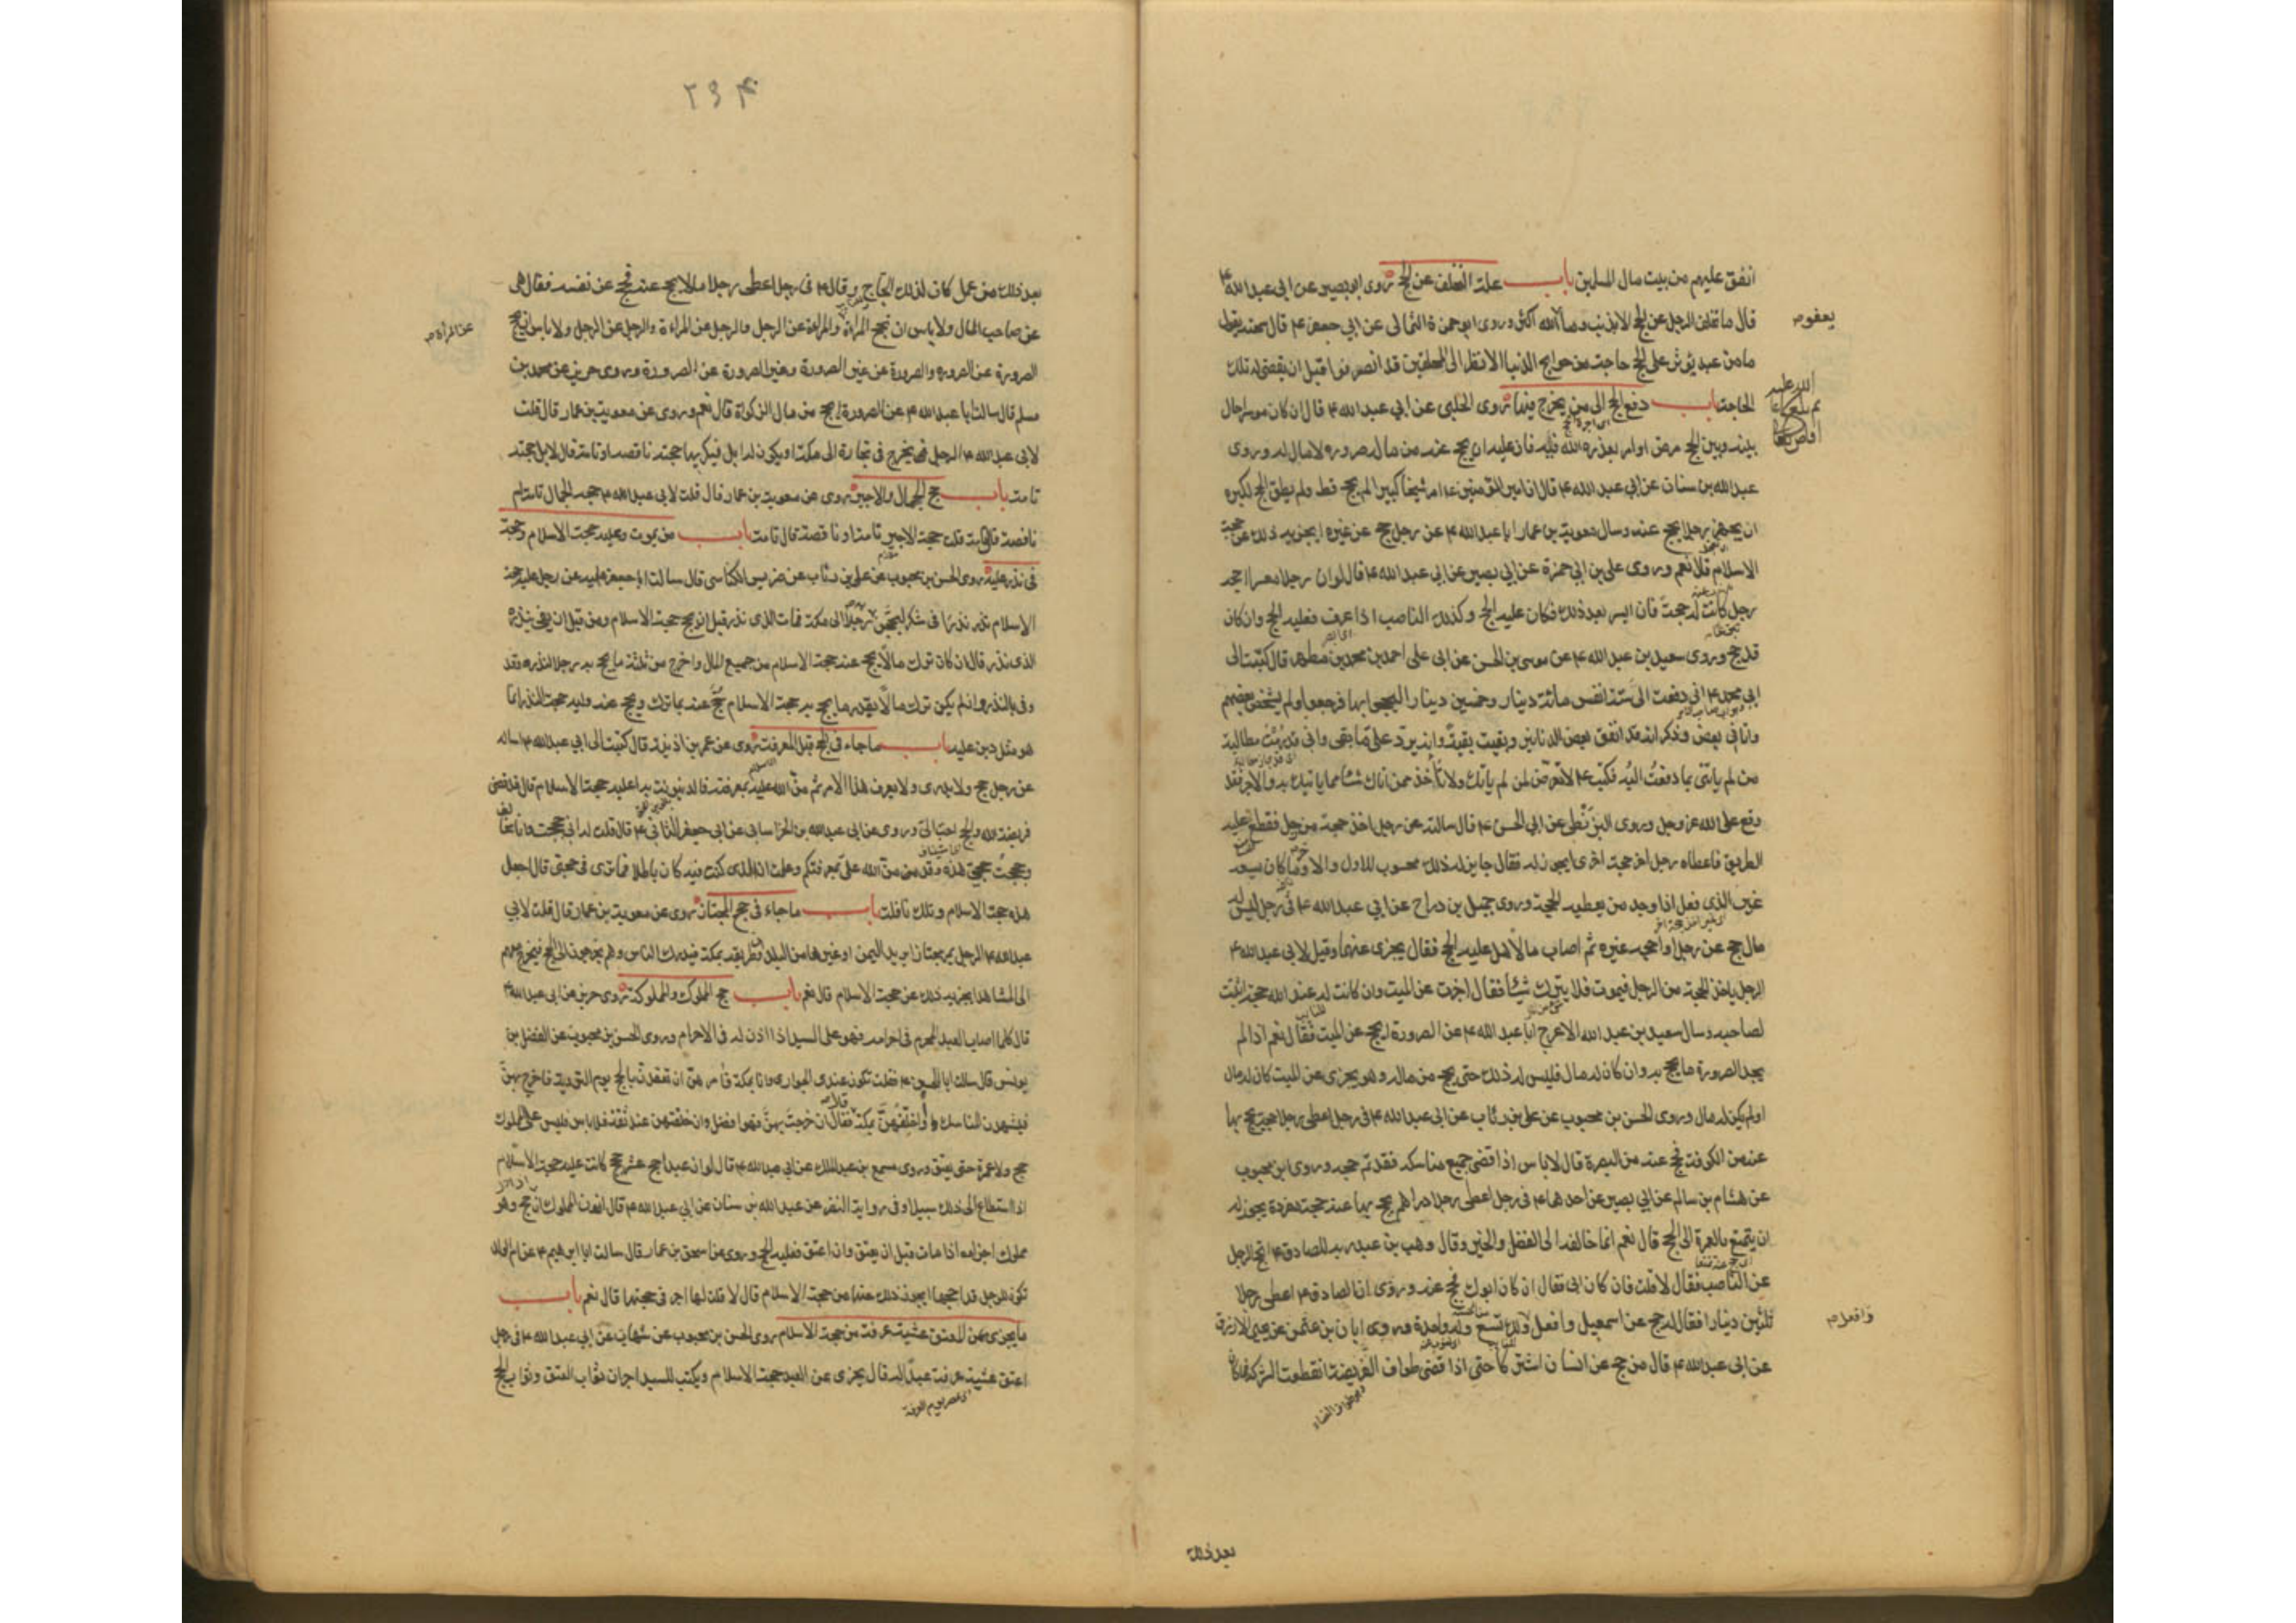 انفق عليهم من بيت مال المسلمين باب علة التخلف عن الحج روى ابو بصير عن ابى عبد الله ع
قال ما تخلف الرجل عن الحج الا بذنب وما الله اكثر وروى ابو حمزة الثمالى عن ابي جعفر ع قال سمعته يقول
يعفو م
ما من عبد يؤثر على الحج حاجة من حوايج الدنيا الا نظر الى المحلقين قد انصرفوا قبل ان يقضى له تلك
الحاجة باب دفع الحج الى من يخرج فيها روى الحلبى عن ابي عبد الله ع قال ان كان موسرا حال
بينه وبين الحج مرض او امر يعذره الله فيه فان عليه ان يحج عنه من ماله صروره لا مال له وروى
عبد الله بن سنان عن ابي عبد الله ع قال ان امير المؤمنين ع امر شيخا كبيرا لم يحج قط ولم يطق الحج لكبره
ان يجهز رجلا يحج عنه وسال معوية بن عمار ابا عبد الله ع عن رجل حج عن غيره ايجزيه ذلك عن حجة
الاسلام قال نعم وروى على بن ابي حمزة عن ابي بصير عن ابى عبد الله ع قال لو ان رجلا معسرا احجه
رجل كانت له حجة فان ايسر بعد ذلك فكان عليه الحج وكذلك الناصب اذا عرف فعليه الحج وان كان
قد حج وروى سعيد بن عبد الله ع عن موسى بن الحسن عن ابى على احمد بن محمد بن مطهر قال كتبت الى
ابي محمد ع انى دفعت الى ستة انفس مائة دينار وخمسين دينارا ليحجوا بها فرجعوا ولم يشخص بعضهم
واتانى بعض وذكر انه قد انفق بعض الدنانير وبقيت بقية وانه يرد على ما بقى وانى قد رمت مطالبة
من لم ياتنى بما دفعت اليه فكتب ع لا تعرض لمن لم ياتك ولا تأخذ ممن اتاك شيئا مما ياتيك به والاجر فقد
وقع على الله عز وجل وروى البزنطى عن ابي الحسن ع قال سالته عن رجل اخذ حجة من رجل فقطع عليه
الطريق فاعطاه رجل اخر حجة اخرى ايجوز له فقال جايز له ذلك محسوب للاول والاخر وما كان يسعه
غير الذى فعل اذا وجد من يعطيه الحجة وروى جميل بن دراج عن ابي عبد الله ع فى رجل ليس له
مال حج عن رجل او احجه غيره ثم اصاب مالا هل عليه الحج فقال يجزى عنهما وقيل لابي عبد الله ع
الرجل ياخذ الحجة من الرجل فيموت فلا يترك شيئا فقال اجزت عن الميت وان كانت له عند الله حجة اثبتت
لصاحبه وسال سعيد بن عبد الله الاعرج ابا عبد الله ع عن الصرورة ايحج عن الميت فقال نعم اذا لم
يجد الصرورة ما يحج به وان كان له مال فليس له ذلك حتى يحج من ماله وهو يجزى عن الميت كان له مال
او لم يكن له مال وروى الحسن بن محبوب عن على بن رئاب عن ابى عبد الله ع فى رجل اعطى رجلا حجة يحج بها
عنه من الكوفة فحج عنه من البصرة قال لا باس اذا قضى جميع مناسكه فقد تم حجه وروى ابن محبوب
عن هشام بن سالم عن ابي بصير عن احدهما ع فى رجل اعطى رجلا دراهم يحج بها عنه حجة مفردة يجوز له
ان يتمتع بالعمرة الى الحج قال نعم انما خالفه الى الفضل والخير وقال وهب بن عبد ربه للصادق ع ايحج الرجل
عن الناصب فقال لا قلت فان كان ابى فقال ان كان ابوك فحج عنه وروى ان الصادق ع اعطى رجلا
ثلثين دينارا فقال له حج عن اسمعيل وافعل ولك تسع وله واحدة وروى ابان بن عثمن عن يحيى الازرق
وافعل م
عن ابى عبد الله ع قال من حج عن انسان اشتركا حتى اذا قضى طواف الفريضة انقطعت الشركة فما كان
بعد ذلك
٢٩٤
بعد ذلك من عمل كان لذلك الحاج وقال ع فى رجل اعطى رجلا مالا يحج عنه فحج عن نفسه فقال هى
عن صاحب المال ولا باس ان تحج المراة والمراة عن الرجل والرجل عن المراة والرجل عن الرجل ولا باس ان يحج
عن المرأة م
الصرورة عن الصروره والصرورة عن غير الصرورة وغير الصرورة عن الصرورة وروى حريز عن محمد بن
مسلم قال سالت ابا عبد الله ع عن الصرورة ايحج من مال الزكوة قال نعم وروى عن معوية بن عمار قال قلت
لابى عبد الله ع الرجل يخرج فى تجارة الى مكة او يكون له ابل فيكريها حجته ناقصة او تامة قال لا بل حجته
تامة باب حج الجمال والاجير روى عن معوية بن عمار قال قلت لابى عبد الله ع حجة الجمال تامة ام
ناقصة قال تامة قلت حجة الاجير تامة او ناقصة قال تامة باب من يموت وعليه حجة الاسلام وحجة
فى نذر عليه روى الحسن بن محبوب عن على بن رئاب عن ضريس الكناسى قال سالت ابا جعفر ع عن رجل عليه حجة
الاسلام نذر نذرا فى شكر ليحجن رجلا الى مكة فمات الذى نذر قبل ان يحج حجة الاسلام ومن قبل ان يفى بنذره
الذى نذر قال ان كان ترك مالا يحج عنه حجة الاسلام من جميع المال واخرج من ثلثه ما يحج به رجلا لنذره وقد
وفى بالنذر وان لم يكن ترك مالا بقدر ما يحج به حجة الاسلام حج عنه بما ترك ويحج عنه وليه حجة النذر انما
هو مثل دين عليه باب ما جاء فى الحج قبل المعرفة روى عن عمر بن اذينة قال كتبت الى ابي عبد الله ع اساله
عن رجل حج ولا يدرى ولا يعرف هذا الامر ثم من الله عليه بمعرفته والدينونة به اعليه حجة الاسلام قال قد قضى
فريضة الله والحج احب الى وروى عن ابى عبد الله بن الخراسانى عن ابى جعفر الثانى ع قال قلت له انى حججت وانا مخالف
وحججت حجتى هذه وقد من الله على بمعرفتكم وعلمت ان الذى كنت فيه كان باطلا فما ترى فى حجتى قال اجعل
هذه حجة الاسلام وتلك نافلة باب ما جاء فى حج المجتاز روى عن معوية بن عمار قال قلت لابي
عبد الله ع الرجل يمر مجتازا يريد اليمن او غيرها من البلدان وطريقه بمكة فيدرك الناس وهم يخرجون الى الحج فيخرج معهم
الى المشاهد ايجزيه ذلك عن حجة الاسلام قال نعم باب حج المملوك والمملوكة روى حريز عن ابى عبد الله ع
قال كلما اصاب العبد المحرم فى احرامه فهو على السيد اذا اذن له فى الاحرام وروى الحسن بن محبوب عن الفضل بن
يونس قال سالت ابا الحسن ع فقلت تكون عندى الجوارى وانا بمكة فآمرهن ان تعقدن بالحج يوم التروية فاخرج بهن
فيشهدن المناسك او اخلفهن بمكة فقال ان خرجت بهن فهو افضل وان خلفتهن عند ثقة فلا باس فليس على المملوك
حج ولا عمرة حتى يعتق وروى مسمع بن عبد الملك عن ابي عبد الله ع قال لو ان عبدا حج عشر حجج كانت عليه حجة الاسلام
اذا استطاع الى ذلك سبيلا وفى رواية النضر عن عبد الله بن سنان عن ابي عبد الله ع قال ان المملوك ان حج وهو
مملوك اجزاه اذا مات قبل ان يعتق وان اعتق فعليه الحج وروى عن اسحق بن عمار قال سالت ابا ابرهيم ع عن ام الولد
تكون للرجل قد احجها ايجوز ذلك عنها من حجة الاسلام قال لا قلت لها اجر فى حجتها قال نعم باب
ما يجزى عن المعتق عشية عرفة من حجة الاسلام روى الحسن بن محبوب عن شهاب عن ابى عبد الله ع فى رجل
اعتق عشية عرفة عبدا له قال يجزى عن العبد حجة الاسلام ويكتب للسيد اجران ثواب العتق وثواب الحج